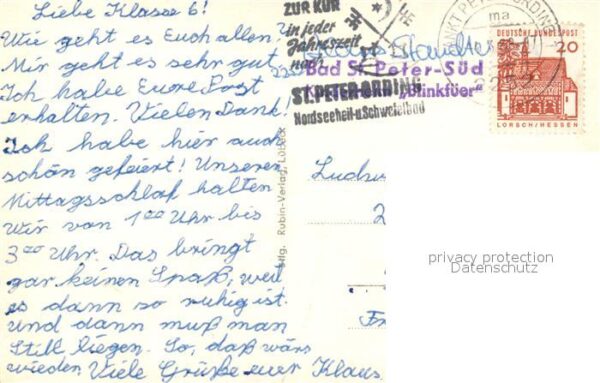 Liebe Klasse 6!
Wie geht es Euch allen?
Mir geht es sehr gut.
Ich habe Eure Post
erhalten. Vielen Dank!
Ich habe hier auch
schön gefeiert! Unseren
Mittagsschlaf halten
wir von 1⁰⁰ Uhr bis
3⁰⁰ Uhr. Das bringt
gar keinen Spaß, weil
es dann so ruhig ist.
und dann muß man
Still liegen. So, daß wärs
wieder. Viele Grüße euer Klaus
ZUR KUR
in jeder
Jahreszeit
nach
ST. PETER-ORDING
Nordseeheil-u. Schwefelbad
Bad St. Peter-Süd
"Blinkfüer"
ma
DEUTSCHE BUNDESPOST
20
LORSCH/HESSEN
Rubin-Verlag, Lübeck
Ludw
2
Fr
privacy protection
Datenschutz